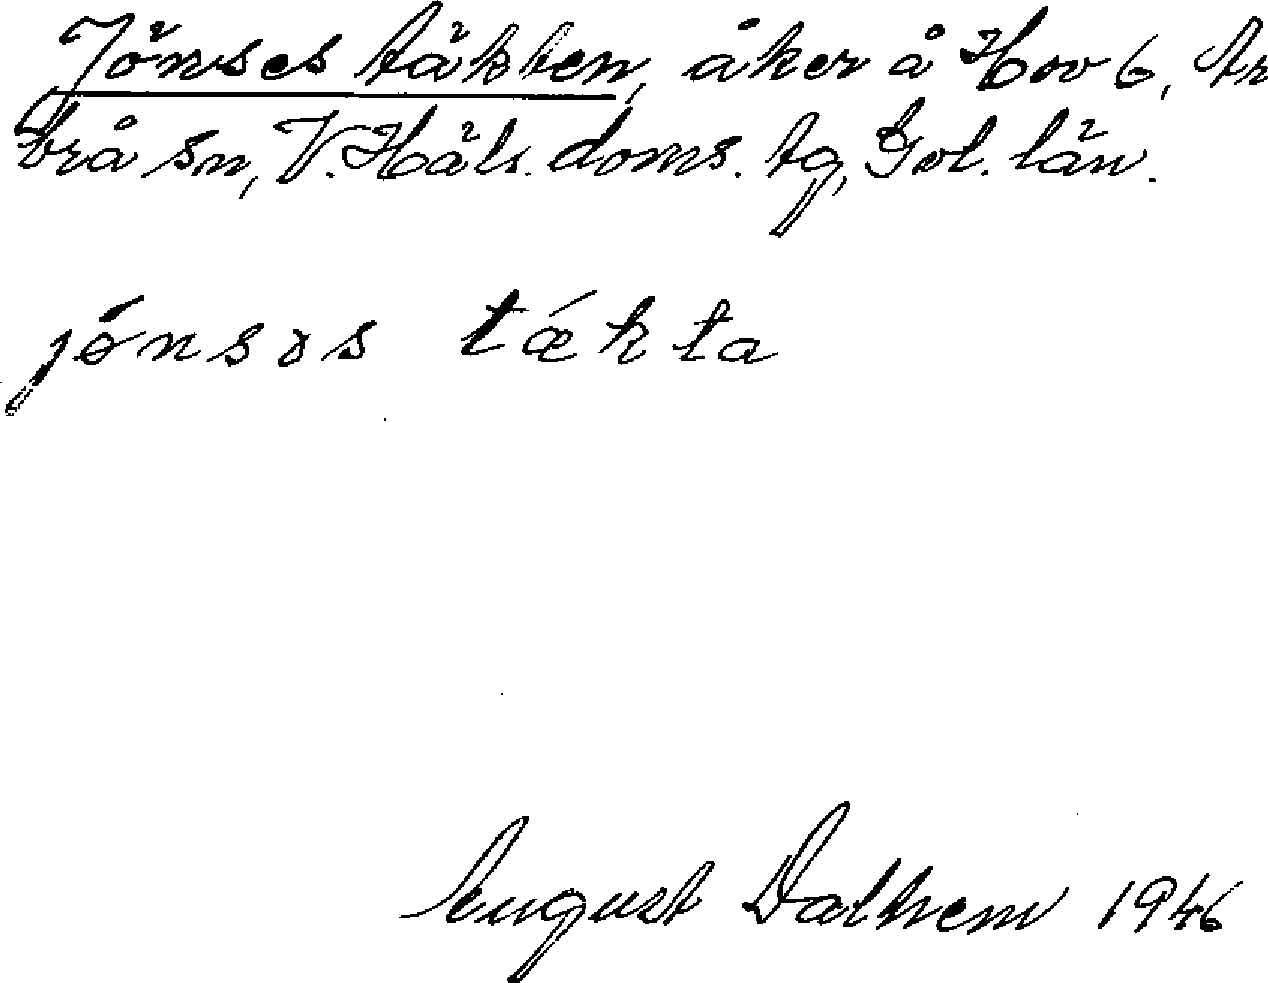 Jönses täkten, åker å Hov 6, Ar
brå sn, V. Häls. doms. tg, Gvl. län.
jónsɤs tǽkta
August Dalhem 1946